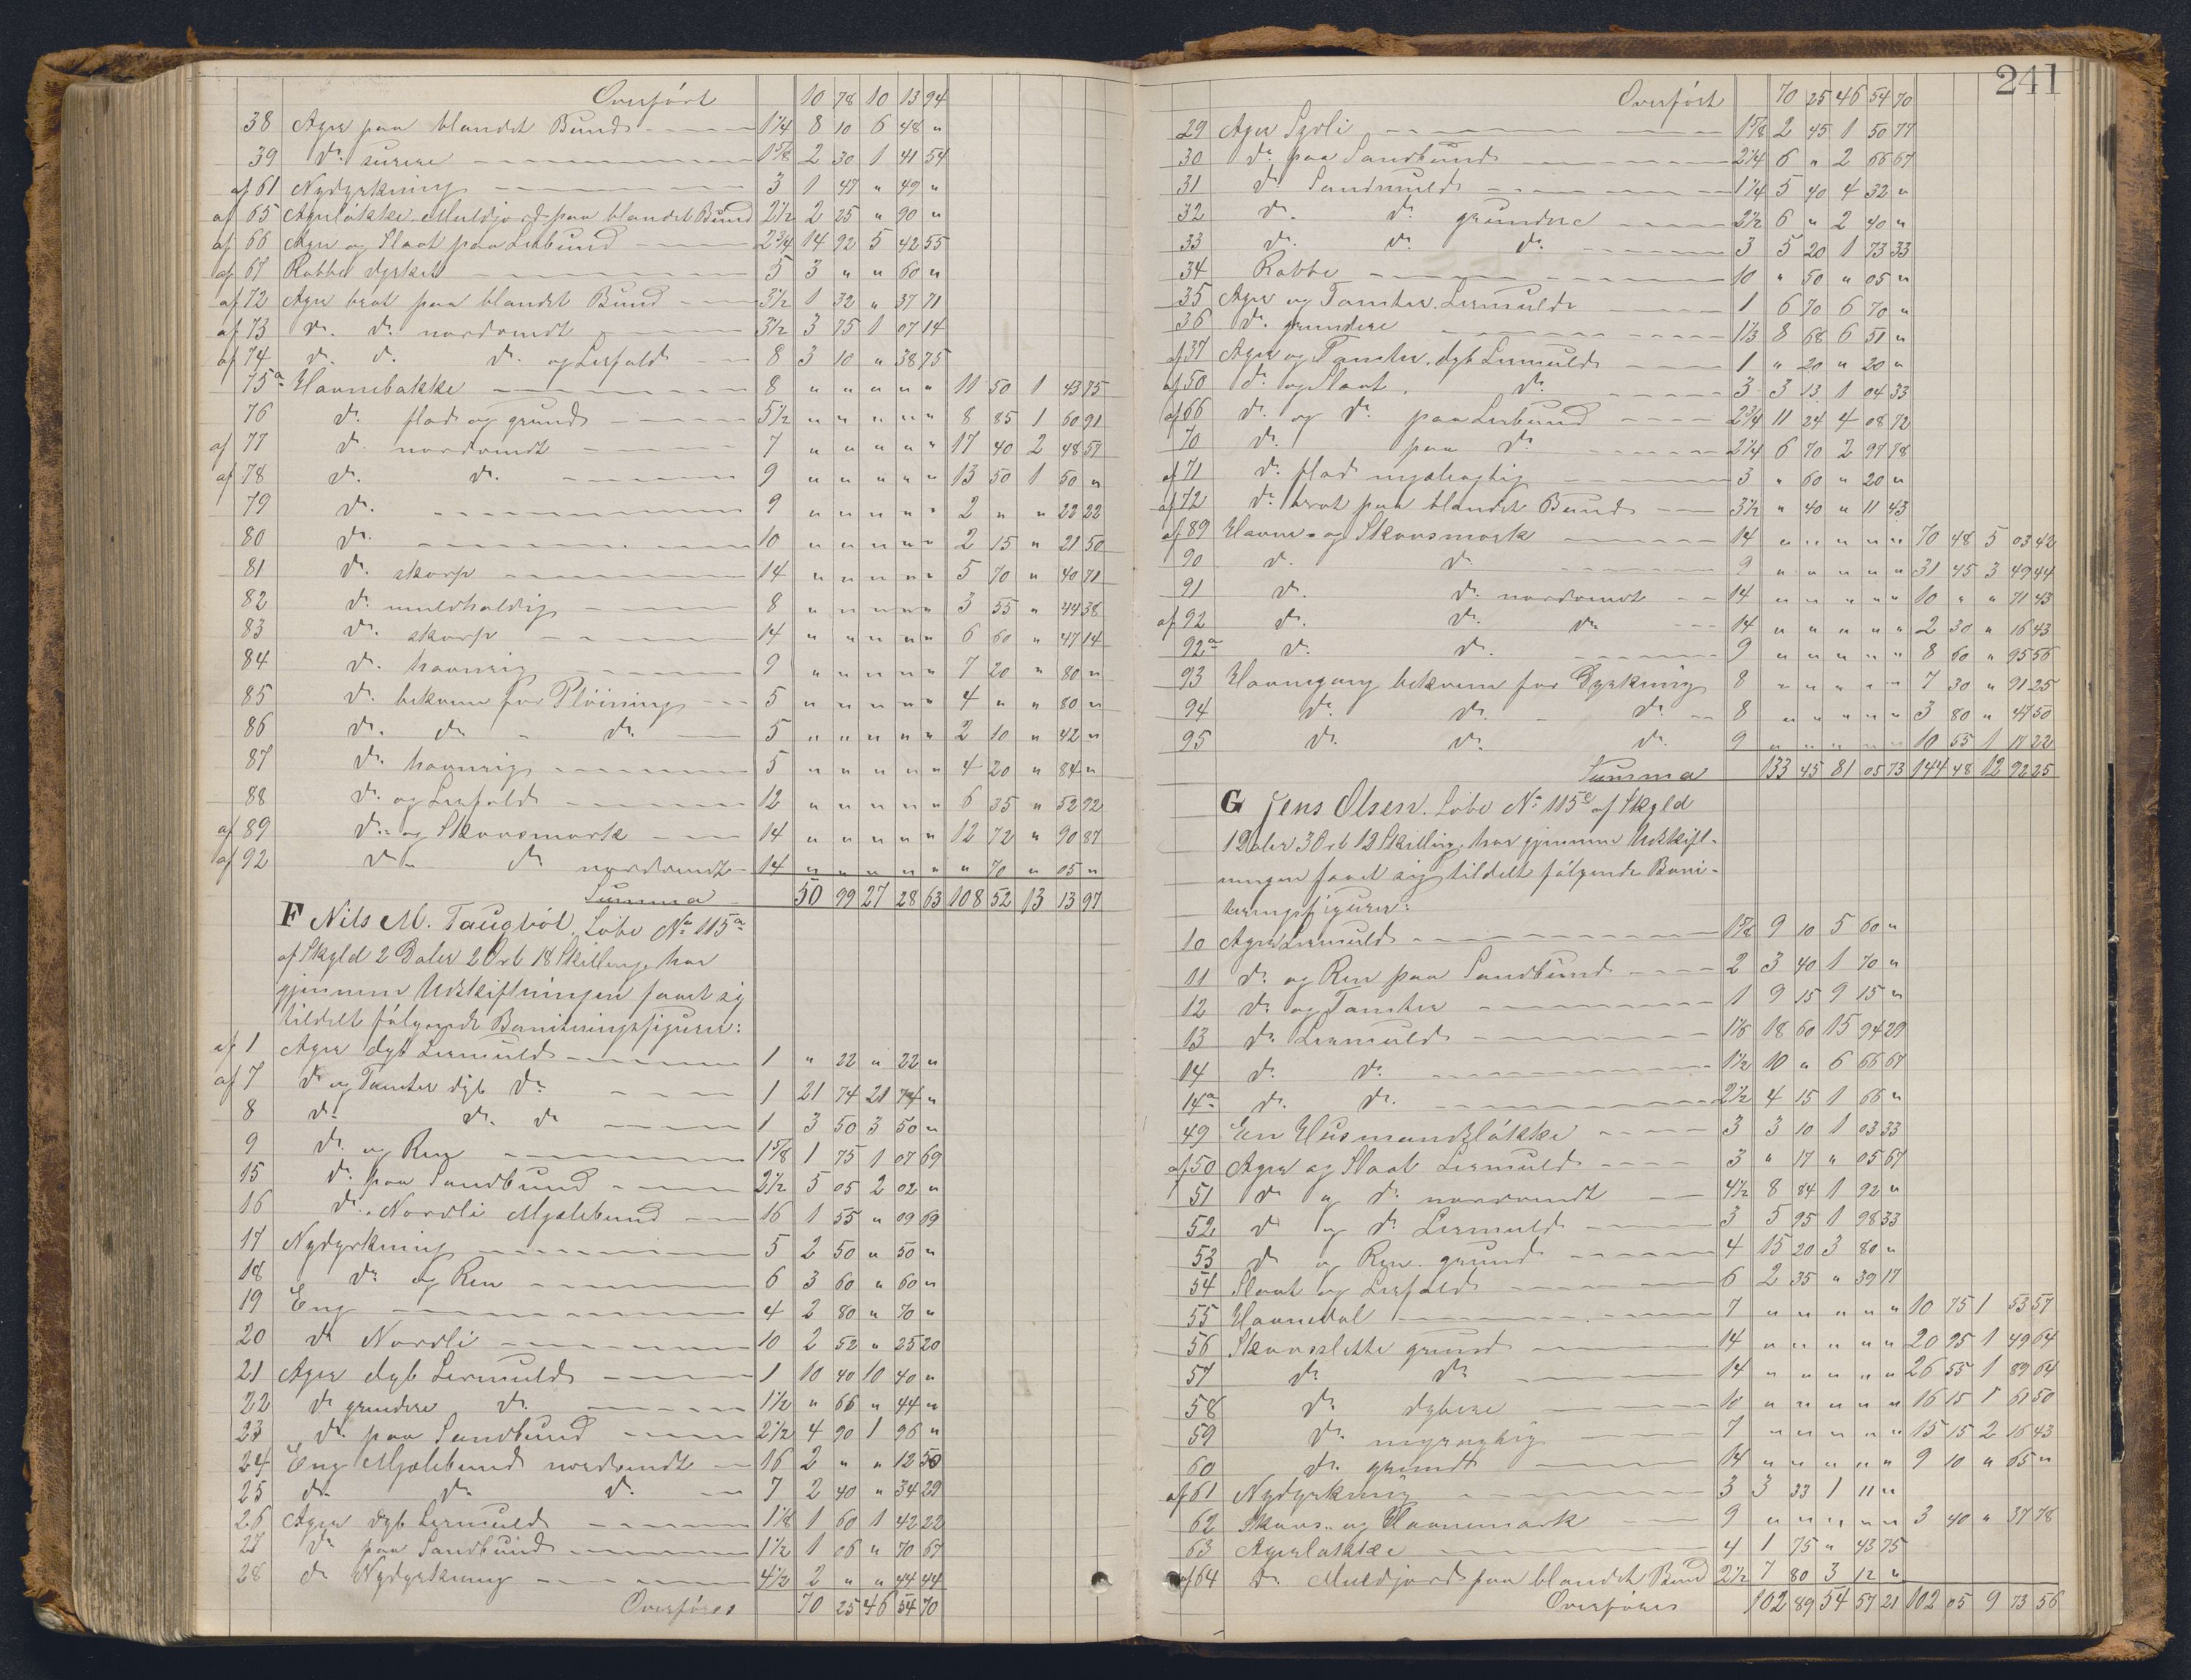 Overført 10 78 10 13 94
38 Ager paa blandet Bund 1 1/4 8 10 6 48 "
39 do surere 1 5/8 2 30 1 41 54
af 61 Nydyrkning 3 1 47 " 49 "
af 65 Agerløkke Muldjord paa blandet Bund 2 1/2 2 25 " 90 "
af 66 Ager og Slaat paa Lerbund 2 3/4 14 92 5 42 55
af 67 Rabbe dyrket 5 3 " " 60 "
af 72 Ager brat paa blandet Bund 3 1/2 1 32 " 37 71
af 73 do do nordvendt 3 1/2 3 75 1 07 14
af 74 do do do og Lerfald 8 3 10 " 38 75
75a Havnebakke 8 " " " " " 11 50 1 43 75
76 do flad og grund 5 1/2 " " " " " 8 85 1 60 91
af 77 do nordvendt 7 " " " " " 17 40 2 48 57
af 78 do do 9 " " " " " 13 50 1 50 "
79 do 9 " " " " " 2 " " 22 22
80 do 10 " " " " " 2 15 " 21 50
81 do skarp 14 " " " " " 5 70 " 40 71
82 do muldholdig 8 " " " " " 3 55 " 44 38
83 do skarp 14 " " " " " 6 60 " 47 14
84 do havnrig 9 " " " " " 7 20 " 80 "
85 do bekvem for Pløining 5 " " " " " 4 " " 80 "
86 do do do 5 " " " " " 2 10 " 42 "
87 do havnrig 5 " " " " " 4 20 " 84 "
88 do og Lerfald 12 " " " " " 6 35 " 52 92
af 89 do og Skovsmark 14 " " " " " 12 72 " 90 87
af 92 do do nordvendt 14 " " " " " " 70 " 05 "
Summa 50 99 27 28 63 108 52 13 13 97
F Nils M. Taugbøl, Løbe No 115a
af Skyld 2 Daler 2 Ort 18 Skilling har
gjennem Udskiftningen faaet sig
tildelt følgende Boniteringsfigurer:
af 1 Ager dyb Lermuld 1 " 22 " 22 "
af 7 do og Tomter dyb do 1 21 74 21 74 "
8 do do do 1 3 50 3 50 "
9 do og Ren 1 5/8 1 75 1 07 69
15 do paa Sandbund 2 1/2 5 05 2 02 "
16 do Nordli Mjælebund 16 1 55 " 09 69
17 Nydyrkning 5 2 50 " 50 "
18 do og Ren 6 3 60 " 60 "
19 Eng 4 2 80 " 70 "
20 do Nordli 10 2 52 " 25 20
21 Ager dyb Lermuld 1 10 40 10 40 "
22 do grundere do 1 1/2 " 66 " 44 "
23 do paa Sandbund 2 1/2 4 90 1 96 "
24 Eng Mjælebund nordvendt 16 2 " " 12 50
25 do do do 7 2 40 " 34 29
26 Ager dyb Lermuld 1 1/8 1 60 1 42 22
27 do paa Sandbund 1 1/2 1 06 " 70 67
28 do Nydyrkning 4 1/2 2 " " 44 44
Overføres 70 25 46 54 70
241
Overført 70 25 46 54 70
29 Ager Sydli 1 5/8 2 45 1 50 77
30 do paa Sandbund 2 1/4 6 " 2 66 67
31 do Sandmuld 1 1/4 5 40 4 32 "
32 do do grundere 2 1/2 6 " 2 40 "
33 do do do 3 5 20 1 73 33
34 Rabbe 10 " 50 " 05 "
35 Ager og Tomter Lermuld 1 6 70 6 70 "
36 do grundere 1 1/3 8 68 6 51 "
af 37 Ager og Tomter dyb Lermuld 1 " 20 " 20 "
af 50 do og Slaat do 3 3 13 1 04 33
af 66 do og do paa Lerbund 2 3/4 11 24 4 08 72
70 do paa do 2 1/4 6 70 2 97 78
af 71 do flad myrlagtig 3 " 60 " 20 "
af 72 do brat paa blandet Bund 3 1/2 " 40 " 11 43
af 89 Havne- og Skovsmark 14 " " " " " 70 48 5 03 42
90 do do 9 " " " " " 31 45 3 49 44
91 do do nordvendt 14 " " " " " 10 " " 71 43
af 92 do do do 14 " " " " " 2 30 " 16 43
92a do do 9 " " " " " 8 60 " 95 56
93 Havnegang bekvem for Dyrkning 8 " " " " " 7 30 " 91 25
94 do do do 8 " " " " " 3 80 " 47 50
95 do do do 9 " " " " " 10 55 1 17 22
Summa 133 45 81 05 73 144 48 12 92 25
G Jens Olsen. Løbe No 115c af Skyld
1 Daler 3 Ort 12 Skilling har gjennem Udskift-
ningen faaet sig tildelt følgende Boni-
teringsfigurer:
10 Ager Lermuld 1 5/8 9 10 5 60 "
11 do og Ren paa Sandbund 2 3 40 1 70 "
12 do og Tomter 1 9 15 9 15 "
13 do Lermuld 1 1/6 18 60 15 94 29
14 do do 1 1/2 10 " 6 66 67
14a do do 2 1/2 4 15 1 66 "
49 En Husmandsløkke 3 3 10 1 03 33
af 50 Ager og Slaat Lermuld 3 " 17 " 05 67
51 do og do nordvendt 4 1/2 8 84 1 92 "
52 do og do Lermuld 3 5 95 1 98 33
53 do og Ren grund 4 15 20 3 80 "
54 Slaat og Lerfald 6 2 35 " 39 17
55 Havnedal 7 " " " " " 10 75 1 53 57
56 Skovslette grund 14 " " " " " 20 95 1 49 64
57 do do 14 " " " " " 26 55 1 89 64
58 do dybere 10 " " " " " 16 15 1 61 50
59 do myragtig 7 " " " " " 15 15 2 16 43
60 do grundt 14 " " " " " 9 10 " 65 "
af 61 Nydyrkning 3 3 33 1 11 "
62 Skovs- og Havnemark 9 " " " " " 3 40 " 37 78
63 Agerløkke 4 1 75 " 43 75
af 64 do Muldjord paa blandet Bund 2 1/2 7 80 3 12 "
Overføres 102 89 54 57 21 102 05 9 73 56